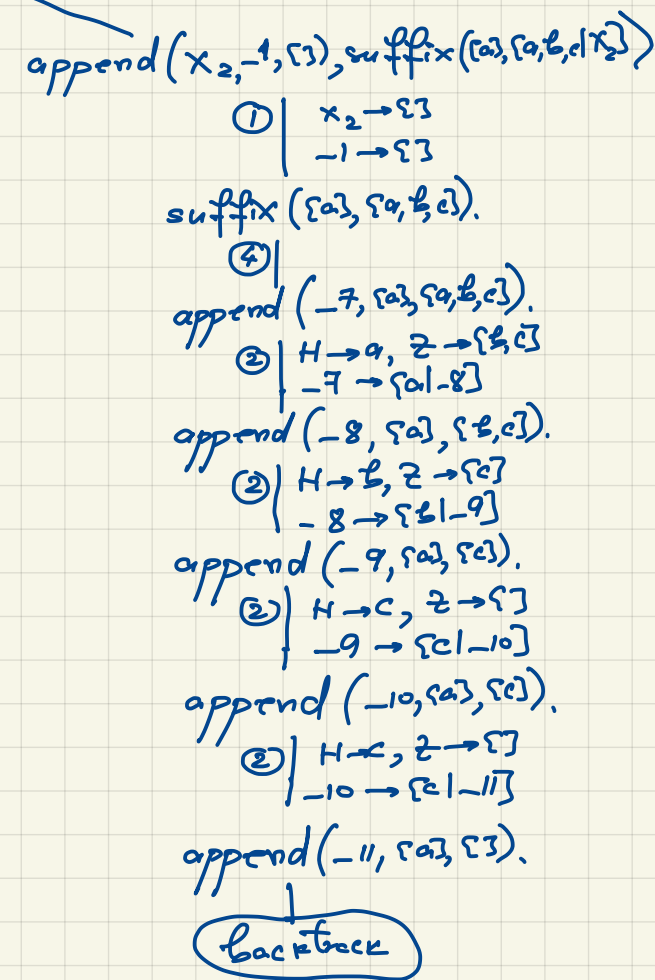 append(X₂,_1,[]),suffix([a],[a,b,c|X₂])
① x₂→[]
_1→[]
suffix([a],[a,b,c]).
④
append(_7,[a],[a,b,c]).
② H→a, Z→[b,c]
_7→[a|_8]
append(_8,[a],[b,c]).
② H→b, Z→[c]
_8→[b|_9]
append(_9,[a],[c]).
② H→c, Z→[]
_9→[c|_10]
append(_10,[a],[c]).
② H→c, Z→[]
_10→[c|_11]
append(_11,[a],[]).
backtrack